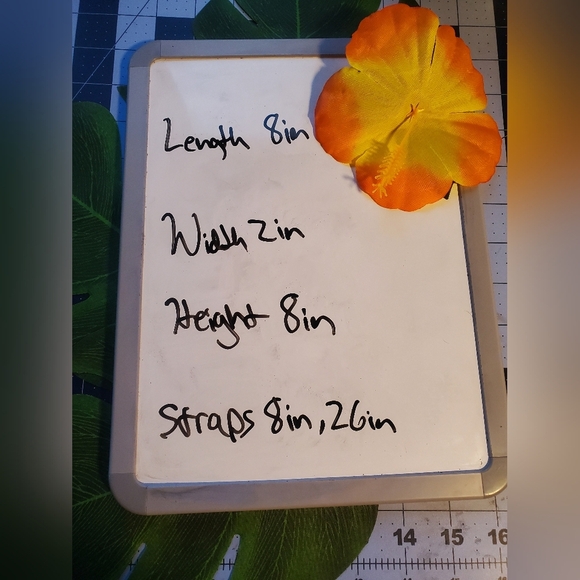 Length 8in
Width 2in
Height 8in
Straps 8in, 26in
14 15 16